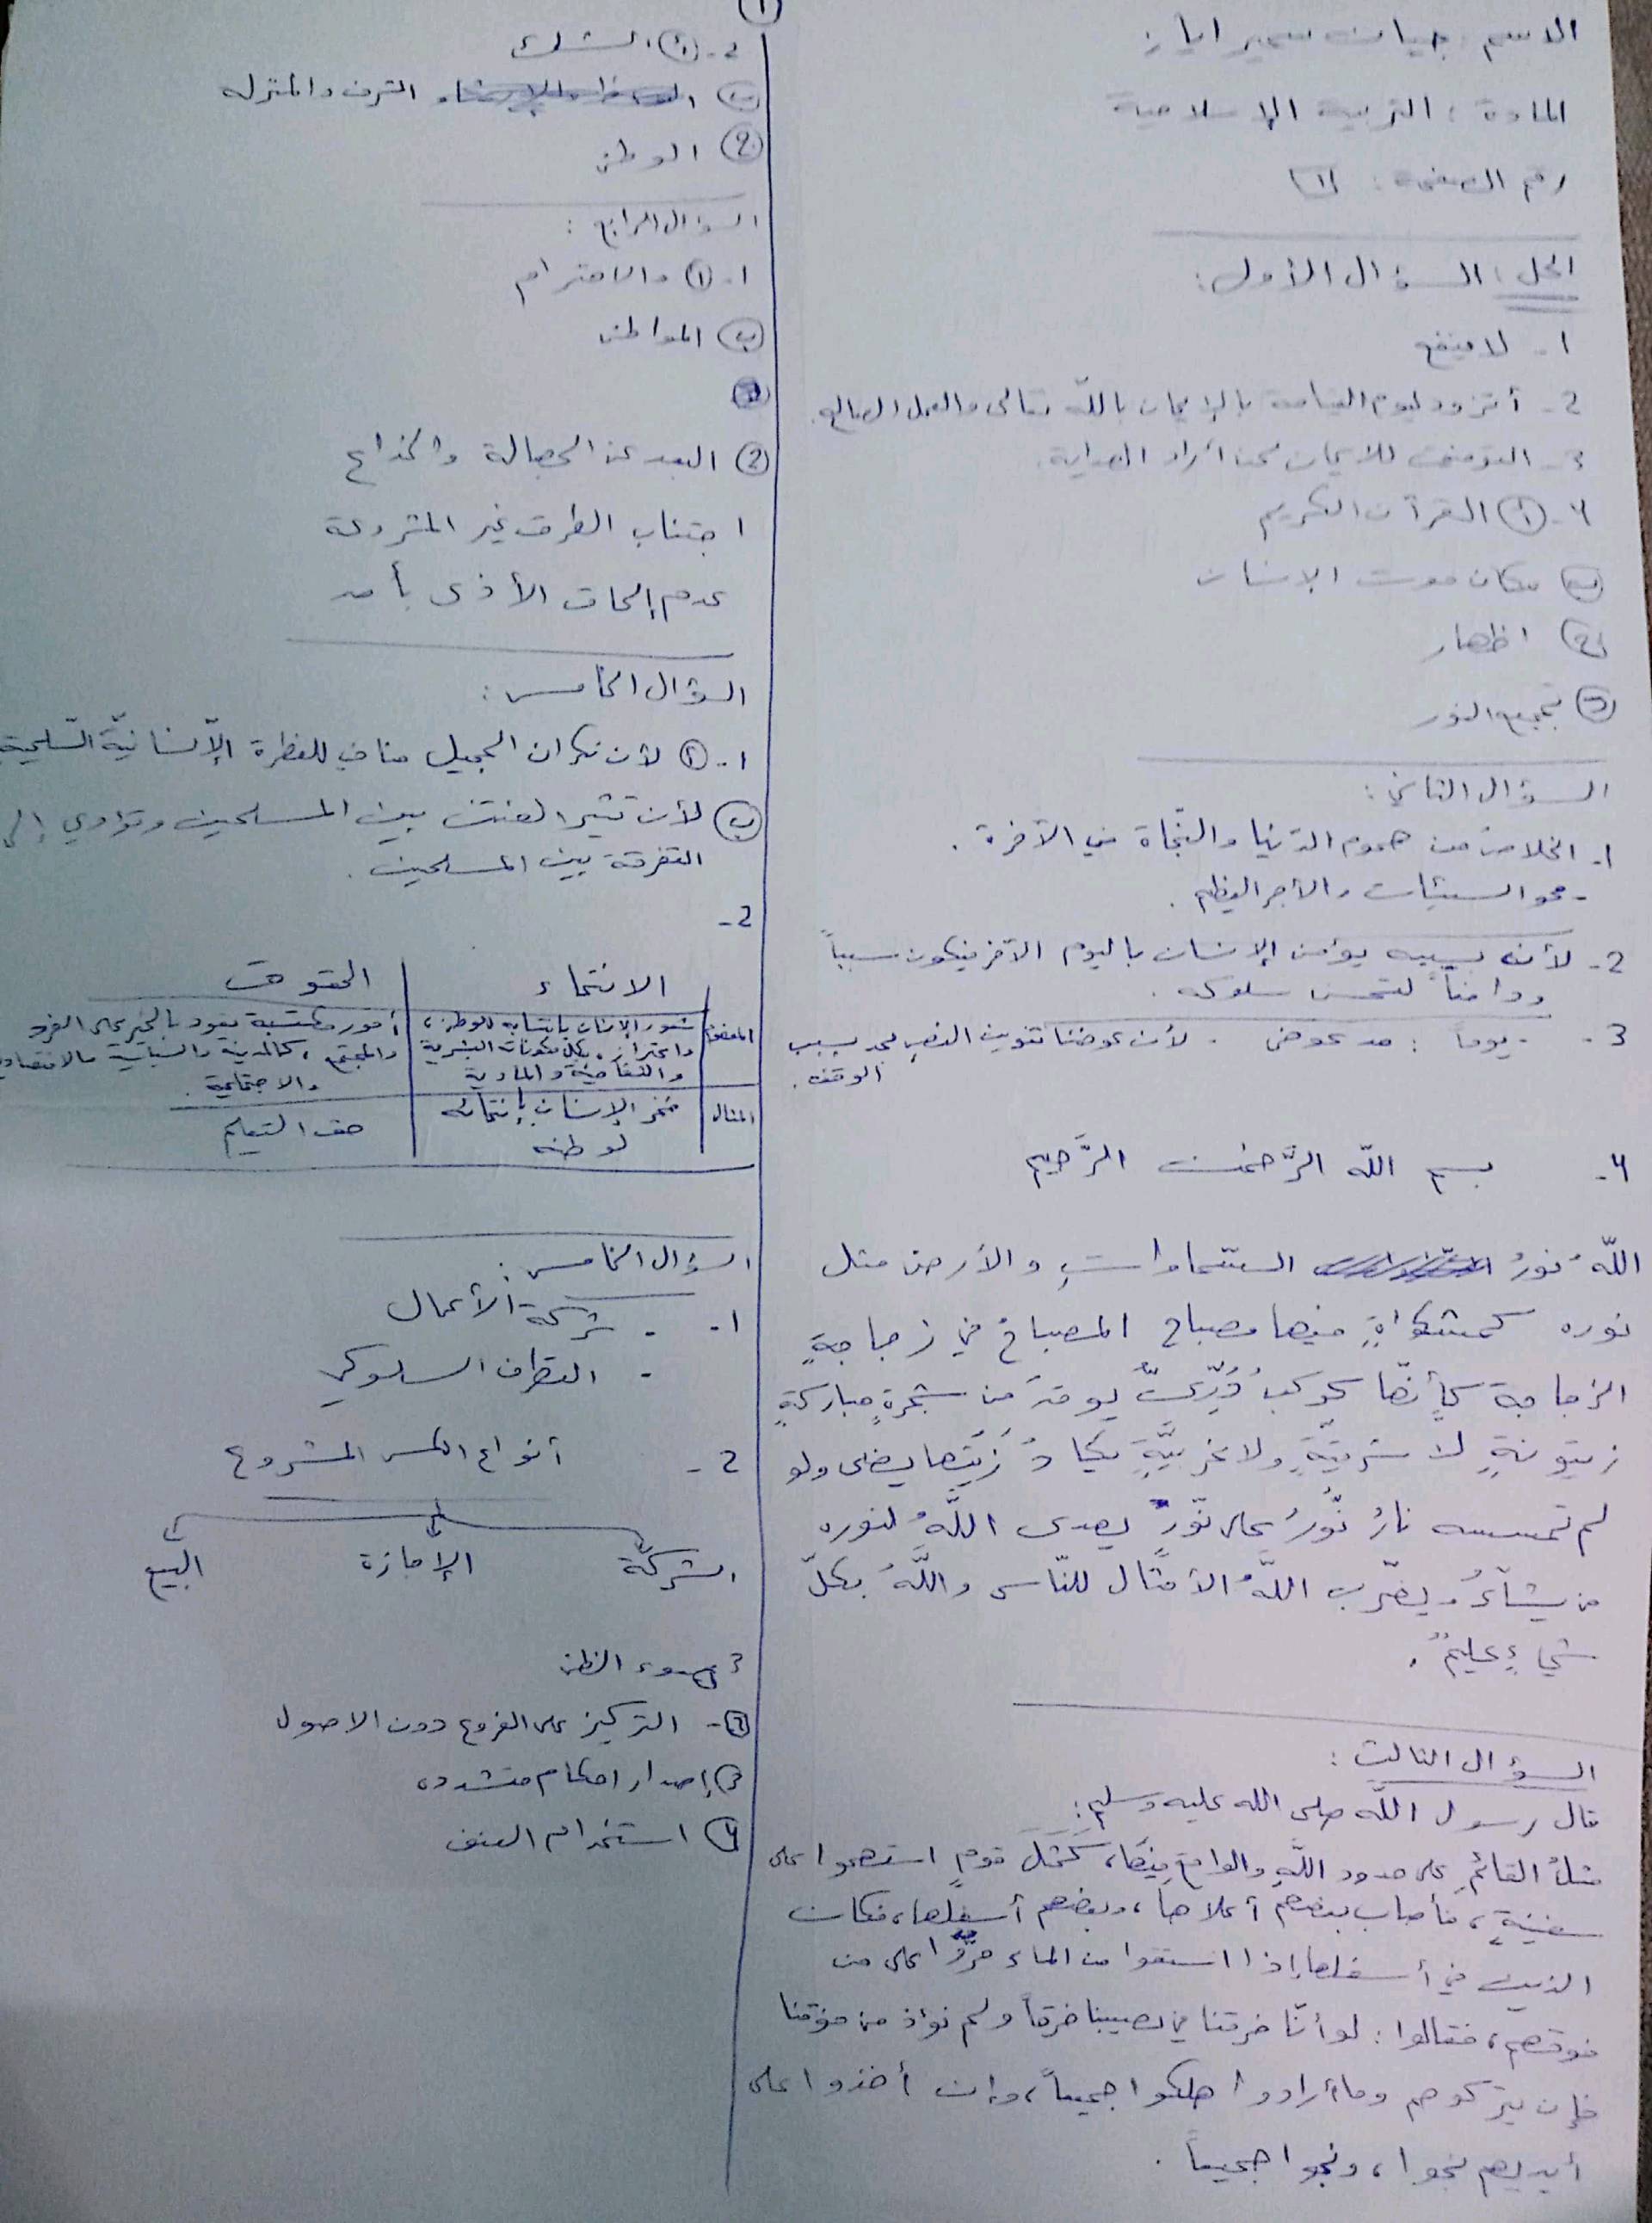 الاسم: جيان سمير اياز
المادة: التربية الإسلامية
رقم الصفحة: (1)
الحل: السؤال الأول:
1- لا ينفع
2- أتزود ليوم القيامة بالإيمان بالله تعالى والعمل الصالح.
3- التوفيق للايمان لمن أراد الهداية.
4- (أ) القرآن الكريم
(ب) مكان موت الإنسان
(ج) اظهار
(د) تجميع النذر
السؤال الثاني:
1- الخلاص من هموم الدّنيا والنّجاة في الآخرة.
- محو السيئات والأجر العظيم.
2- لأن بسببه يؤمن الإنسان باليوم الآخر فيكون سبباً
ودافعاً لتحسن سلوكه.
3- - يوماً: مد عوض - لأن عوضنا تنوين النصب بمد بسبب
الوقف.
4- بسم الله الرَّحمن الرَّحيم
اللّهُ نورُ السّماواتِ والأرض مثل
نوره كمشكواةٍ فيها مصباح المصباحُ في زجاجةٍ
الزجاجة كأنّها كوكبُ دُرّيٌّ يوقدَ من شجرةٍ مباركةٍ
زيتونةٍ لّا شرقيّةٍ ولا غربيَّةٍ يكادُ زَيتها يضى ولو
لم تمسسه نارُ نُّورُ على نّورٍ يهدى اللَّهُ لنوره
من يشآءُ ويضرب اللَّهُ الأمثال للنّاس واللَّهُ بكلّ
شيءٍ عليمٌ.
السؤال الثالث:
قال رسول اللّه صلى الله عليه وسلم:
مثلُ القائمِ على حدود اللّهِ والواقع فيها، كمثل قومٍ استهموا على
سفينةٍ، فأصاب بعضهم أعلاها، وبعضهم أسفلها، فكان
الذين في أسفلها إذا استقوا من الماء مرّوا على من
فوقهم، فقالوا: لو أنّا خرقنا في نصيبنا خرقاً ولم نؤذ من فوقنا
فإن يتركوهم وما أرادوا هلكوا جميعاً، وإن أخذوا على
أيديهم نجوا، ونجوا جميعاً.
(1)
2- (أ) الشرك
(ب) الشرف والمنزله
(ج) الوطن
السؤال الرابع:
1- (أ) والاحترام
(ب) المواطن
(2) البعد عن الجهالة والخداع
اجتناب الطرق غير المشروعة
عدم إلحاق الأذى بأحد
السؤال الخامس:
1- (أ) لأن نكران الجميل منافي للفطرة الإنسانيّة السّليمة
(ب) لأن تثير الفتن بين المسلمين وتؤدي إلى
التفرقة بين المسلمين.
2-
الانتماء الحقوق
المفهوم شعور الإنسان بانتسابه للوطن، أمور مكتسبة يعود بالخير على الفرد
واعتزازه بكل مكونات البشرية والمجتمع، كالمدنية والسياسية والاقتصادية
والثقافية والمادية والاجتماعية.
المثال فخر الإنسان بإنتمائه حق التعليم
لوطنه
السؤال الخامس:
1- - شركة الأعمال
- التطرف السلوكي
2- أنواع الكسب المشروع
الشركة الإجازة البيع
3 سوء الظن
- التركيز على الفروع دون الاصول
(3) إصدار احكام متشدده
(4) استخدام العنف